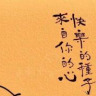 快樂的種子
來自你的心